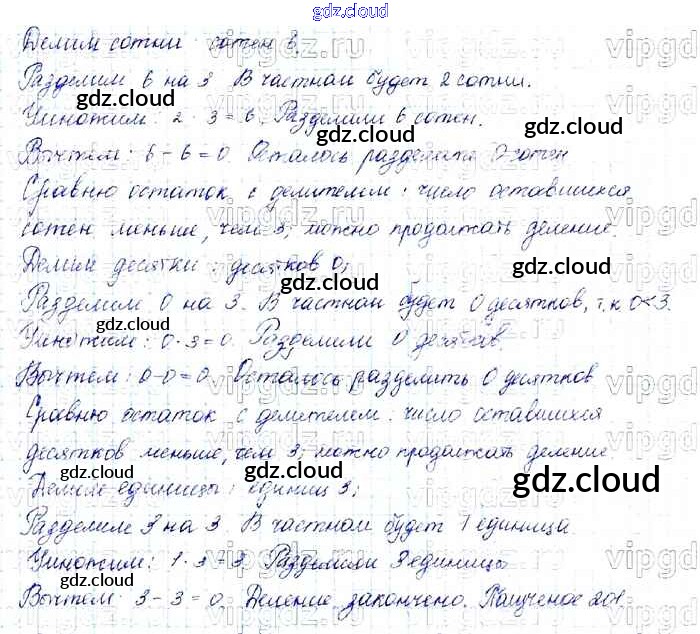 gdz.cloud
Делим сотни: сотен 3.
Разделим 6 на 3. В частном будет 2 сотни.
gdz.cloud
Умножим: 2 · 3 = 6. Разделили 6 сотен.
gdz.cloud
Вычтем: 6 - 6 = 0. Осталось разделить 0 сотен
Сравню остаток с делителем: число оставшихся
сотен меньше, чем 3; можно продолжать деление.
Делим десятки: десятков 0;
gdz.cloud
gdz.cloud
Разделим 0 на 3. В частном будет 0 десятков, т.к 0<3.
gdz.cloud
Умножим: 0·3=0. Разделили 0 десятков.
Вычтем: 0-0=0. Осталось разделить 0 десятков
Сравню остаток с делителем: число оставшихся
десятков меньше, чем 3; можно продолжать деление
gdz.cloud
gdz.cloud
gdz.cloud
Делим единицы: единиц 3;
Разделим 3 на 3. В частном будет 1 единица.
Умножим: 1·3=3. Разделили 3 единицы
gdz.cloud
gdz.cloud
Вычтем: 3-3=0. Деление закончено. Полученое 201.